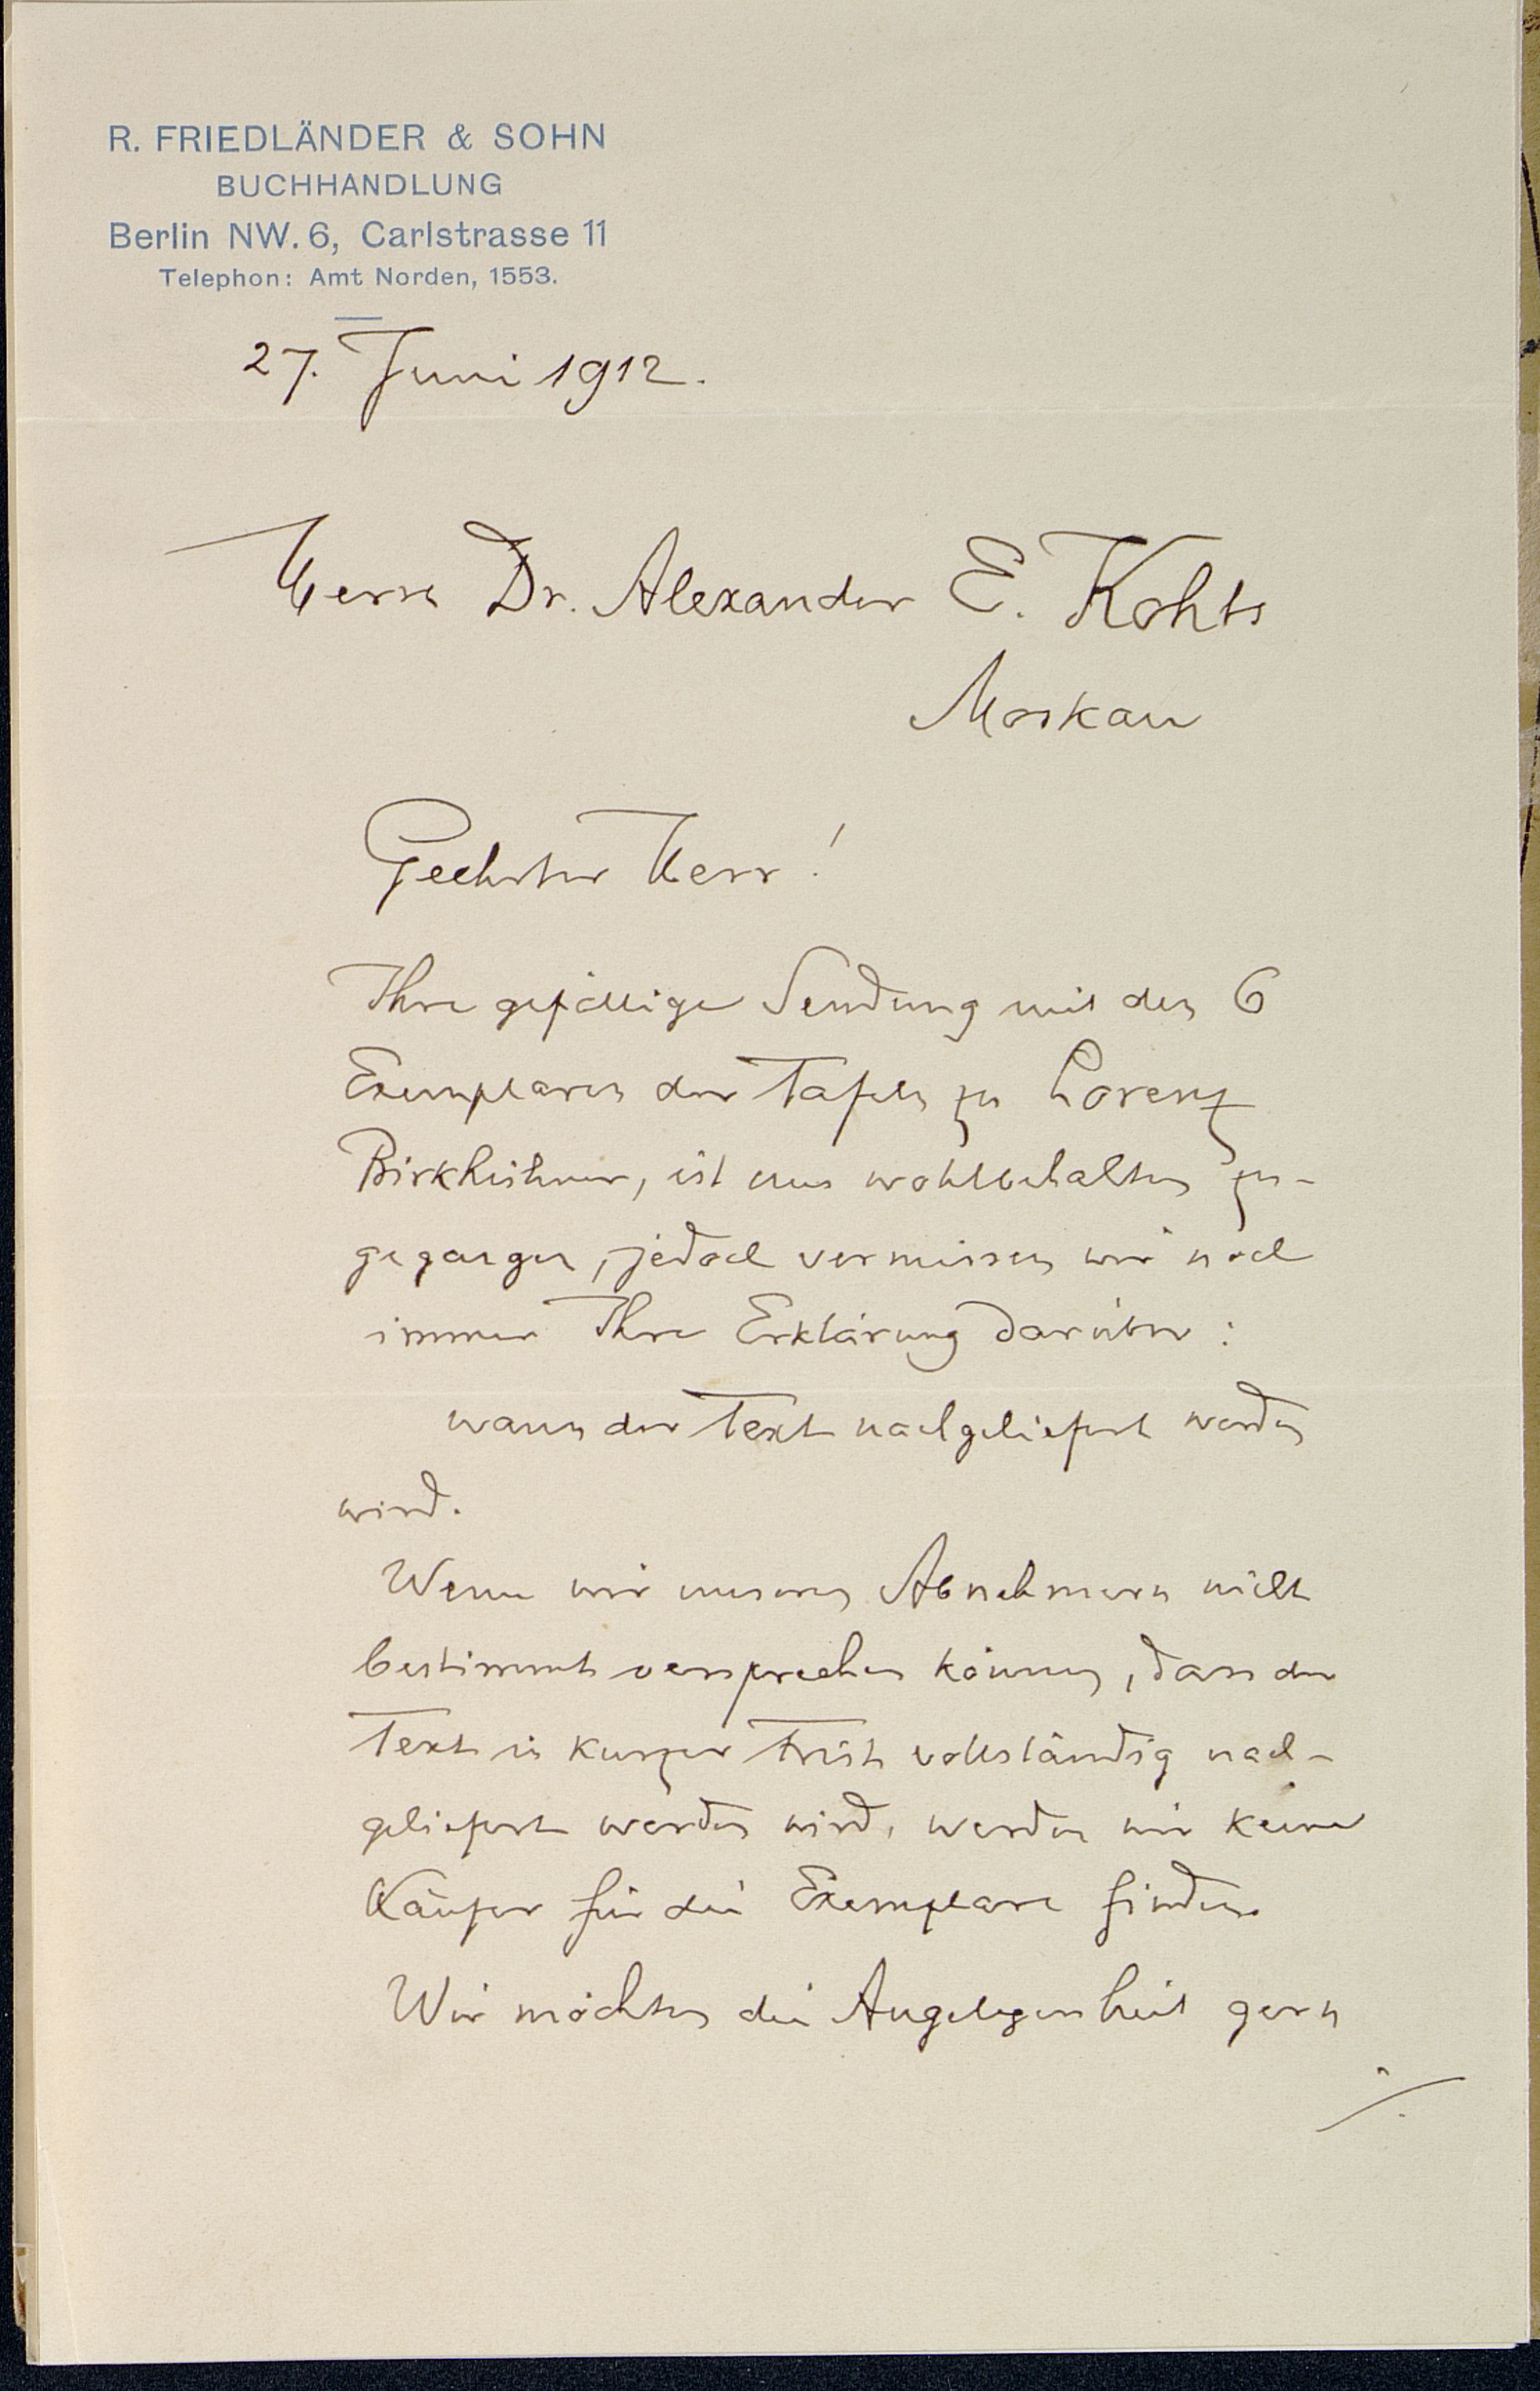 R. FRIEDLÄNDER & SOHN
BUCHHANDLUNG
Berlin NW. 6, Carlstrasse 11
Telephon: Amt Norden, 1553.
27. Juni 1912.
Herrn Dr. Alexander E. Kohts
Moskau
Geehrter Herr!
Ihre gefällige Sendung mit den 6
Exemplaren der Tafeln zu Lorenz
Birkhühner, ist uns wohlbehalten zu-
gegangen, jedoch vermissen wir noch
immer Ihre Erklärung darüber:
wann der Text nachgeliefert werden
wird.
Wenn wir unseren Abnehmern nicht
bestimmt versprechen können, dass der
Text in kurzer Frist vollständig nach-
geliefert werden wird, werden wir keine
Käufer für die Exemplare finden.
Wir möchten die Angelegenheit gern
./.